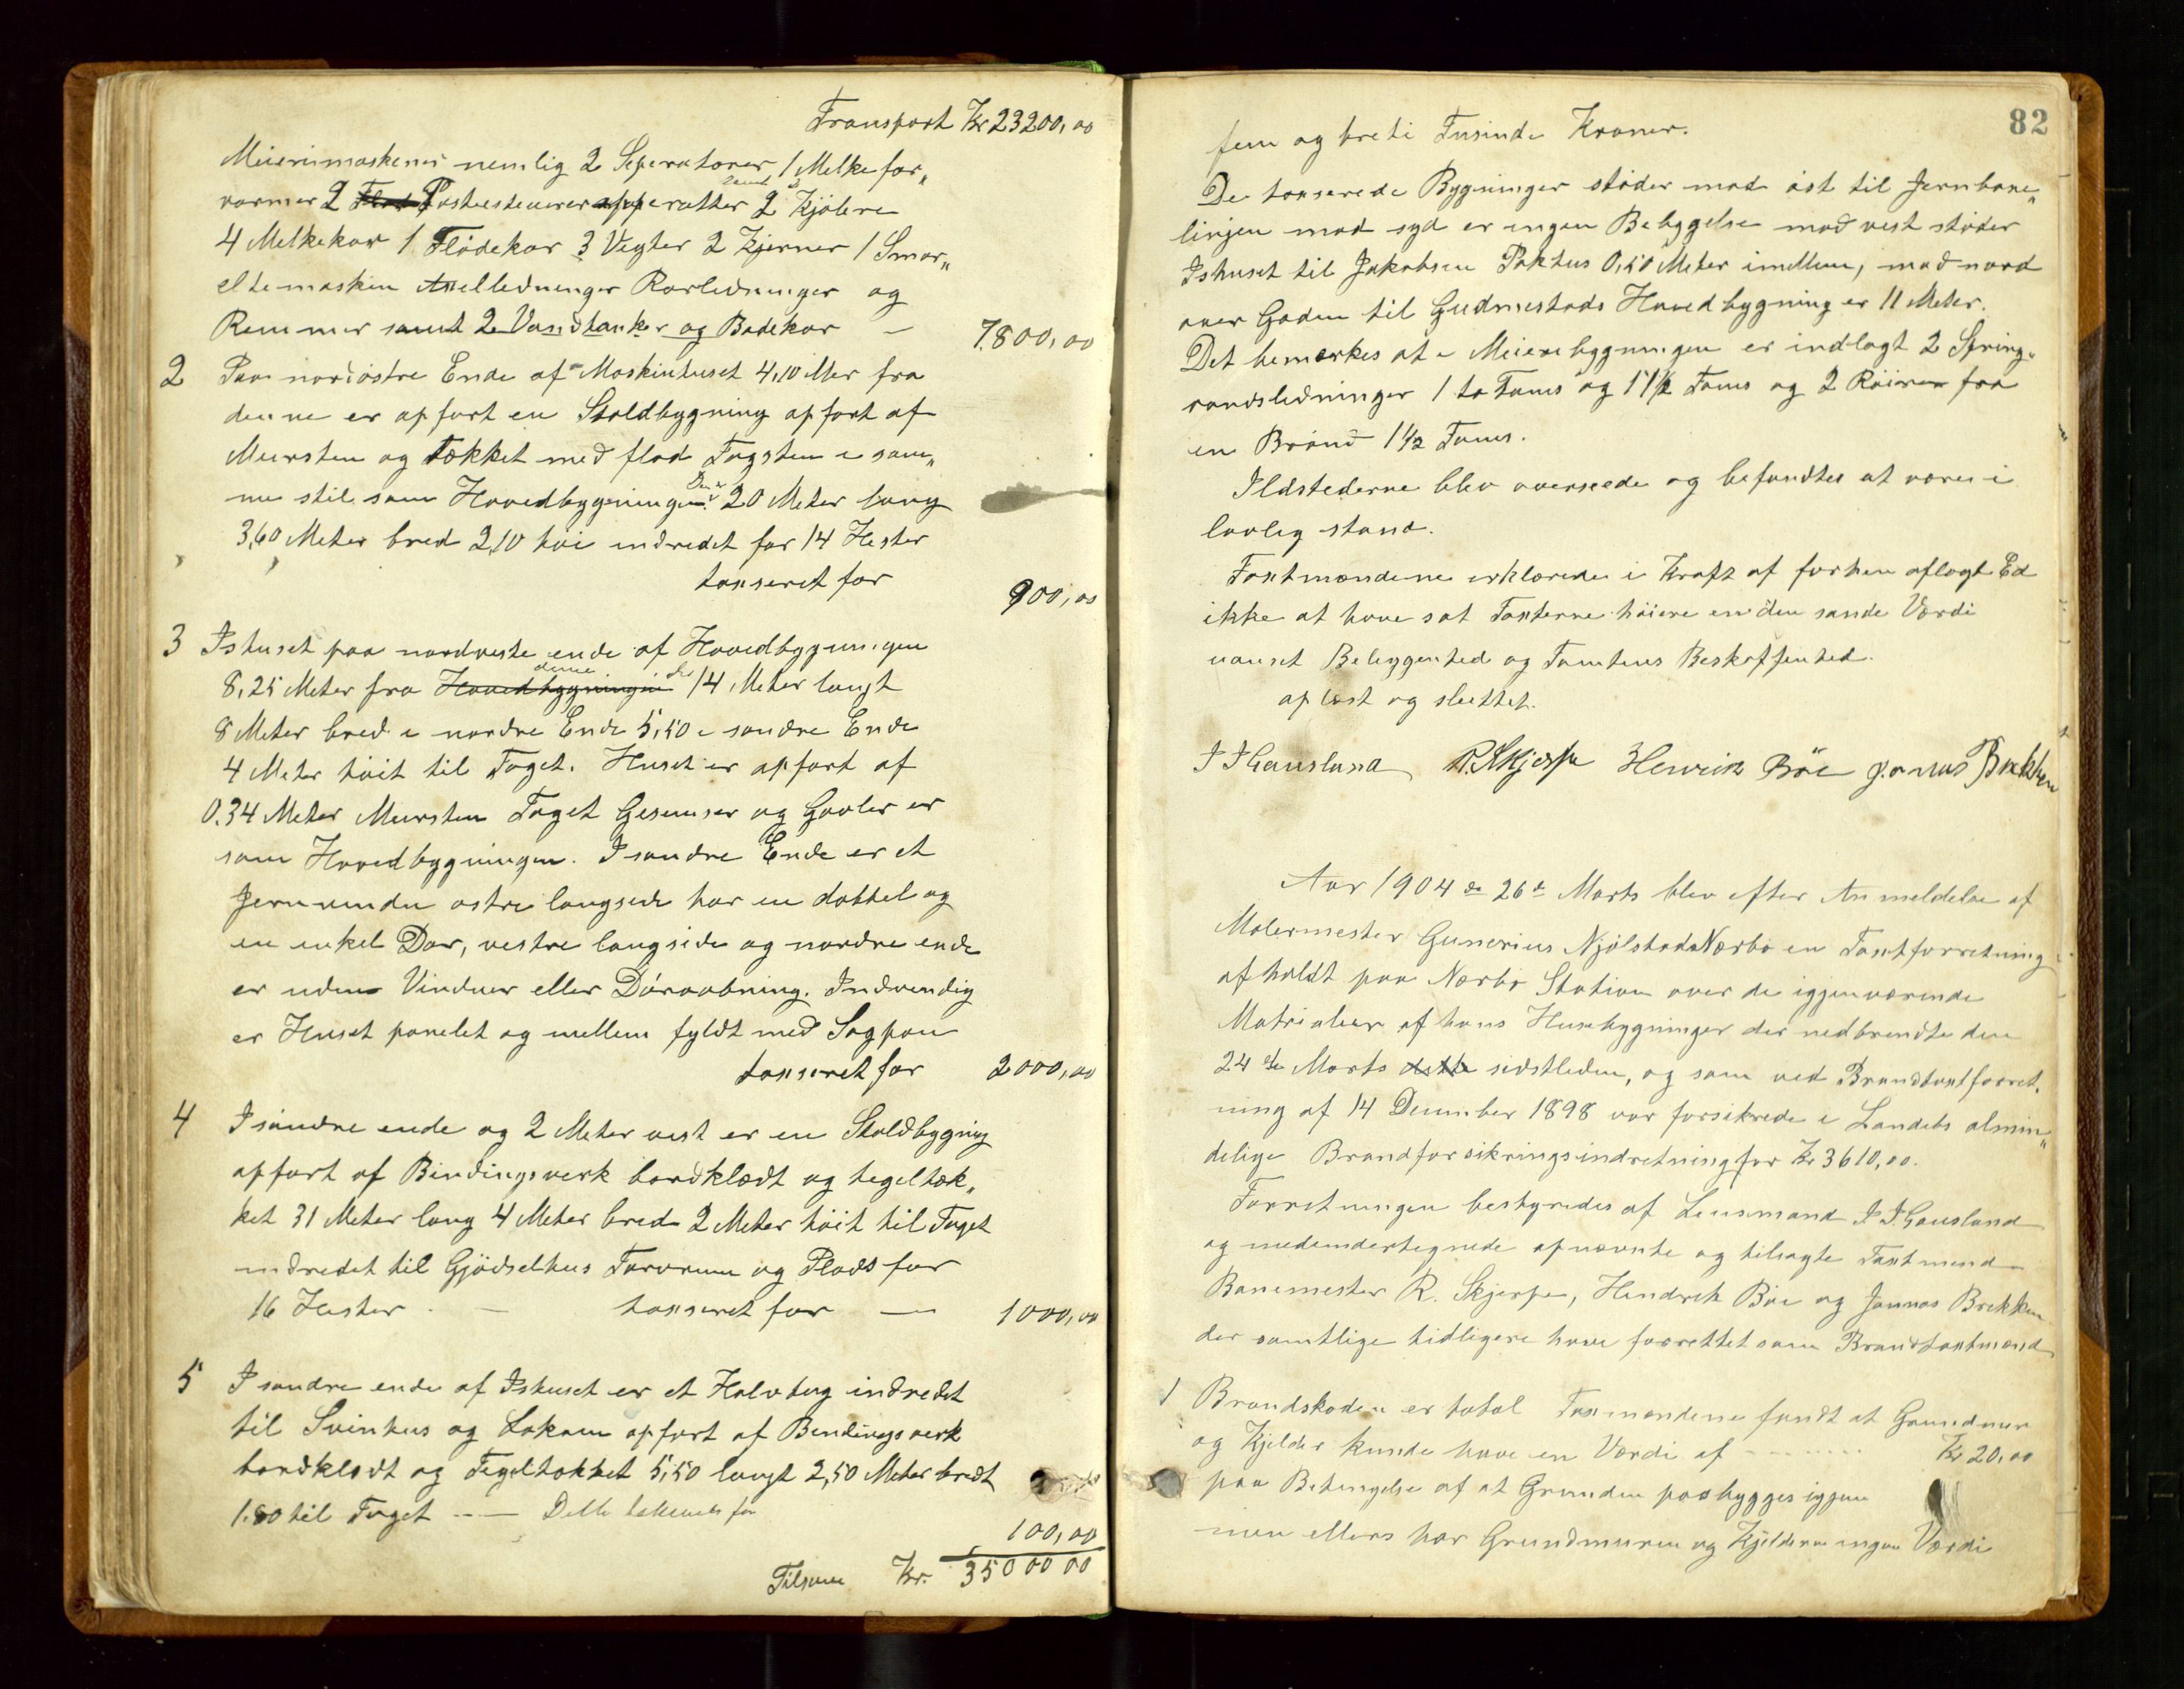 Transport Kr 23200,00
Meierimaskener nemlig 2 Seperatorer, 1 Melkefor„
varmer 2 Pasteuriserer apperatter samt 2 Kjølere
4 Melkekar 1 Flødekar 3 Vegter 2 Kjerner 1 Smør„
eltemaskin Axelledninger Rørledninger og
Remmer samt 2 Vandtanker og Badekar — 7.800,00
2 Paa nordøstre Ende af Maskinhuset 4,10 Meter fra
denne er opført en Staldbygning opført af
Mursten og Tækket med flad Tagsten i sam„
me stil som Hovedbygningen. Den er 20 Meter lang
3,60 Meter bred 2,10 høi indredet for 14 Hester
taxseret for 900,00
3 Ishuset paa nordveste ende af Hovedbygningen
8,25 Meter fra Hovedbygningen denne 14 Meter langt
8 Meter bred i nordre Ende 5,50 i søndre Ende
4 Meter høit til Taget. Huset er opført af
0.34 Meter Mursten Taget Gesimser og Gavler er
som Hovedbygningen. I søndre Ende er et
Jernvindu østre langside har en dobbel og
en enkel Dør, vestre langside og nordre ende
er uden Vinduer eller Døraabning. Indvendig
er Huset panelet og mellem fyldt med Sagpon
taxseret for 2000,00
4 I søndre ende og 2 Meter vest er en Staldbygnig
opført af Bindingsverk bordklædt og tegeltæk„
ket 31 Meter lang 4 Meter bred 2 Meter høit til Taget
indredet til Gjødselhus Forrum og Plads for
16 Hester — taxseret for — 1000,00
5 I søndre ende af Ishuset er et Halvtag indredet
til Svinhus og Lokum opført af Bindingsverk
bordklædt og Tegeltækket 5,50 langt 2,50 Meter bredt
1.80 til Taget — Dette takseret for
100,00
Tilsam Kr. 35000 00
82
fem og treti Tusinde Kroner.
De taxserede Bygninger støder mod øst til Jernbane„
linjen mod syd er ingen Bebyggelse mod vest støder
Ishuset til Jakobsen Pakhus 0,50 Meter imellem, mod nord
over Gaden til Gudmestads Hovedbygning er 11 Meter.
Det bemærkes at i Meieribygningen er indlagt 2 Spring„
vandsledninger 1 to Toms og 1 1½ Toms og 2 Röirer fra
en Brønd 1½ Toms.
Ildstederne blev overseede og befandtes at være i
lovlig stand.
Taxtmændene erklærede i Kraft af forhen aflagt Ed
ikke at have sat Taxterne høiere en den sande Værdi
uanset Beliggenhed og Tomtens Beskaffenhed.
oplæst og sluttet.
J J Gausland R. Skjerpe Henrik Böe Jonas Brekken
Aar 1904 den 26de Marts blev efter Anmeldelse af
Malermester Gunerius Njølstad Nærbø en Taxtforretning
afholdt paa Nærbø Station over de igjenværende
Matrialier af hans Husebygninger der nedbrendte den
24de Marts dette sidstleden, og som ved Brandtaxtforret„
ning af 14 December 1898 var forsikrede i Landets almin„
delige Brandforsikringsindretning for Kr 3610,00.
Forretningen bestyredes af Lensmand J J. Gausland
og medundertegnede opnævnte og tilsagte Taxtmænd
Banemester R. Skjerpe, Hendrik Böe og Jonnas Brekken
der samtlige tidligere have forrettet som Brandtaxtmænd
1 Brandskaden er total Taxmændene fandt at Grundmur
og Kjelder kunde have en Værdi af Kr 20,00
paa Betingelse af at Grunden paabygges igjen
men ellers har Grundmuren og Kjelderen ingen Værdi